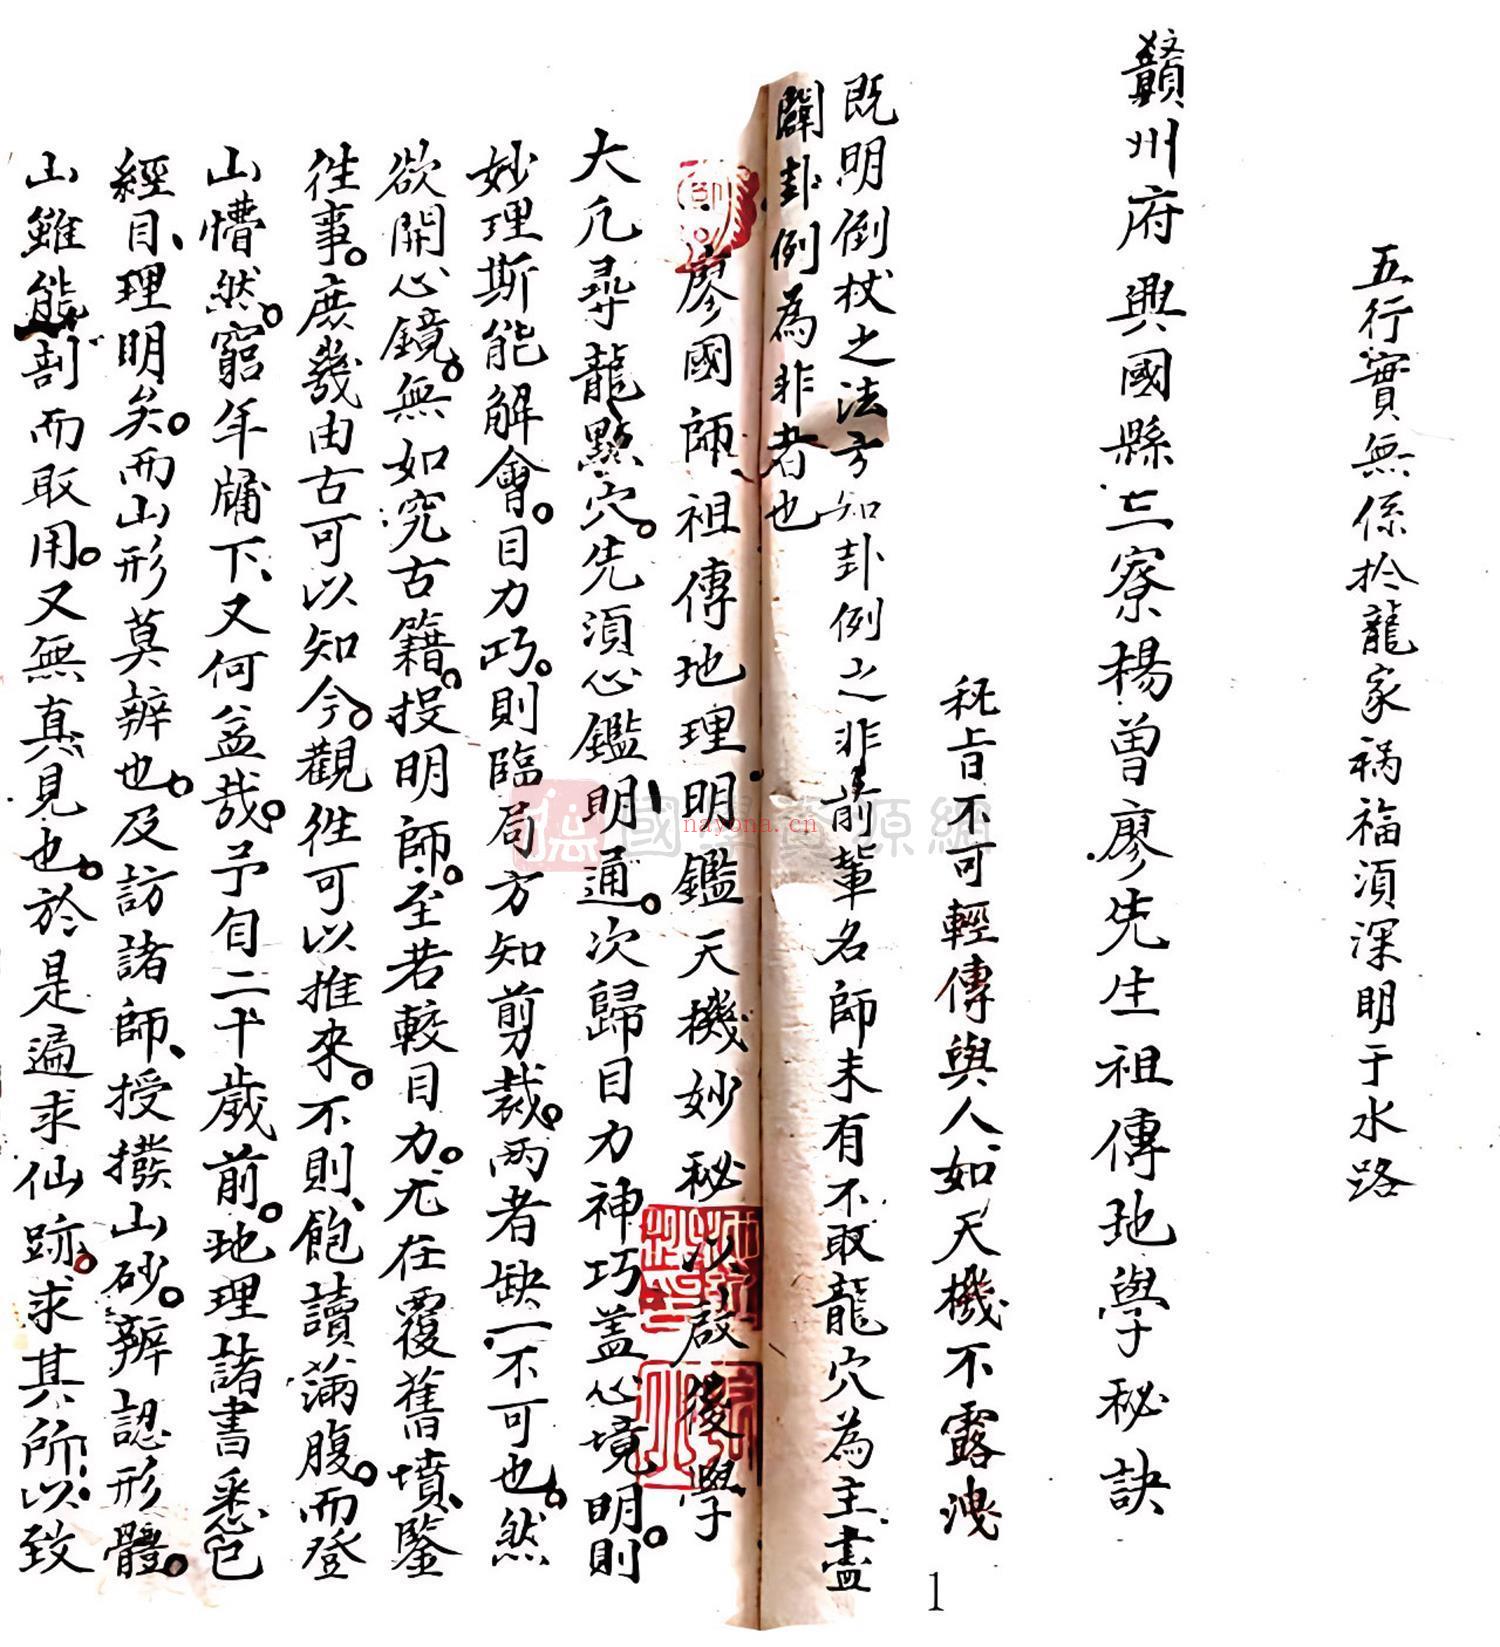 五行實無係於龍家禍福須深明于水路
贛州府興國縣三寮楊曾廖先生祖傳地學秘訣
秘旨不可輕傳與人如天機不露洩
既明倒杖之法方知卦例之非前輩名師未有不取龍穴為主盡
闢卦例為非者也
廖國師祖傳地理明鑑天機妙秘以啟後學
大凡尋龍點穴。先須心鑑明通。次歸目力神巧盖心境明。則
妙理斯能解會。目力巧。則臨局方知剪裁。兩者缺一不可也。然
欲開心鏡。無如究古籍。投明師。至若較目力。尤在覆舊墳、鑒
徃事。庶幾由古可以知今。觀徃可以推來。不則、飽讀滿腹。而登
山懵然。窮年牖下、又何益哉。予自二十歲前。地理諸書悉已
經目、理明矣。而山形莫辨也。及訪諸師、授撥山砂。辨認形體。
山雖能剖而取用。又無真見也。於是遍求仙跡。求其所以致
1
國學資源網
nayona.cn